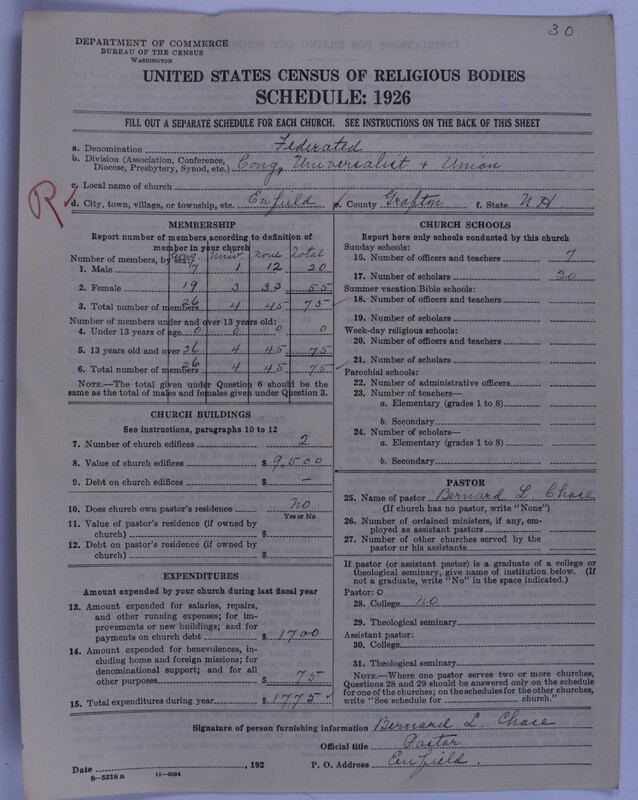 30
DEPARTMENT OF COMMERCE
BUREAU OF THE CENSUS
WASHINGTON
UNITED STATES CENSUS OF RELIGIOUS BODIES
SCHEDULE: 1926
FILL OUT A SEPARATE SCHEDULE FOR EACH CHURCH. SEE INSTRUCTIONS ON THE BACK OF THIS SHEET
a. Denomination Federated
b. Division (Association, Conference, Diocese, Presbytery, Synod, etc.) Cong, Universalist + Union
c. Local name of church
R
d. City, town, village, or township, etc. Enfield e. County Grafton f. State N.H
MEMBERSHIP
Report number of members according to definition of
member in your church
Number of members, by sex: Cong. Univ None Total
1. Male 7 1 12 20
2. Female 19 3 33 55
3. Total number of members 26 4 45 75
Number of members under and over 13 years old:
4. Under 13 years of age 0 0 0 0
5. 13 years old and over 26 4 45 75
6. Total number of members 26 4 45 75
NOTE.—The total given under Question 6 should be
same as the total of males and females given under Question 3.
CHURCH BUILDINGS
See instructions, paragraphs 10 to 12
7. Number of church edifices 2
8. Value of church edifices $ 9,500
9. Debt on church edifices $ —
10. Does church own pastor's residence No
Yes or No
11. Value of pastor's residence (if owned by
church) $
12. Debt on pastor's residence (if owned by
church) $
EXPENDITURES
Amount expended by your church during last fiscal year
13. Amount expended for salaries, repairs,
and other running expenses; for im-
provements or new buildings; and for
payments on church debt $ 1700
14. Amount expended for benevolences, in-
cluding home and foreign missions; for
denominational support; and for all
other purposes $ 75
15. Total expenditures during year $ 1775
CHURCH SCHOOLS
Report here only schools conducted by this church
Sunday schools:
16. Number of officers and teachers 7
17. Number of scholars 30
Summer vacation Bible schools:
18. Number of officers and teachers
19. Number of scholars
Week-day religious schools:
20. Number of officers and teachers
21. Number of scholars
Parochial schools:
22. Number of administrative officers
23. Number of teachers—
a. Elementary (grades 1 to 8)
b. Secondary
24. Number of scholars—
a. Elementary (grades 1 to 8)
b. Secondary
PASTOR
25. Name of pastor Bernard L. Chase
(If church has no pastor, write "None")
26. Number of ordained ministers, if any, em-
ployed as assistant pastors
27. Number of other churches served by the
pastor or his assistants
If pastor (or assistant pastor) is a graduate of a college or
theological seminary, give name of institution below. (If
not a graduate, write "No" in the space indicated.)
Pastor: 0
28. College No
29. Theological seminary
Assistant pastor:
30. College
31. Theological seminary
NOTE.—Where one pastor serves two or more churches,
Questions 28 and 29 should be answered only on the schedule
for one of the churches; on the schedules for the other churches,
write "See schedule for church."
Signature of person furnishing information Bernard L. Chase
Official title Pastor
Date , 192 P. O. Address Enfield.
8—5518 a 11—9054